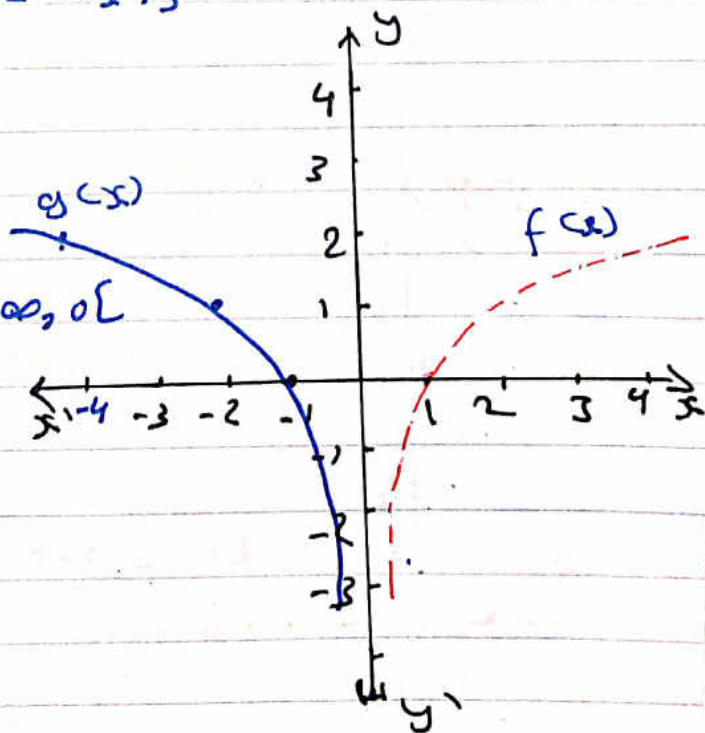 y
4
3
g(x)
2
f(x)
∞, 0[
1
x' -4 -3 -2 -1 1 2 3 4 x
-1
-2
-3
y'